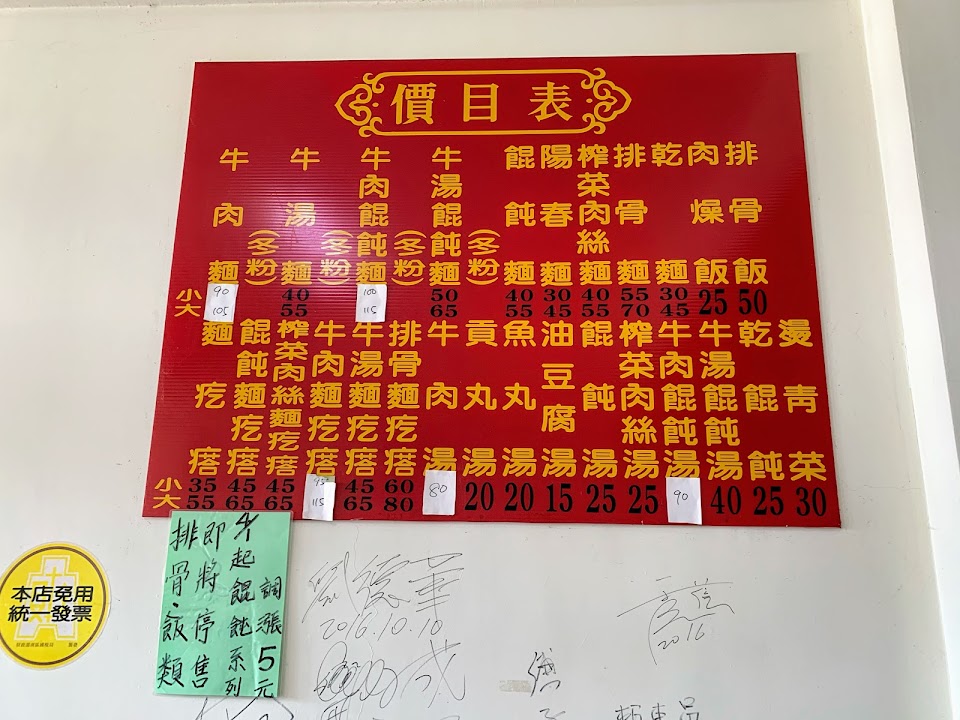 價目表
牛肉麵(冬粉)
牛湯麵(冬粉)
牛肉餛飩麵(冬粉)
牛湯餛飩麵(冬粉)
餛飩麵
陽春麵
榨菜肉絲麵
排骨麵
乾麵
肉燥飯
排骨飯
小 90 40 100 50 40 30 40 55 30 25 50
大 105 55 115 65 55 45 55 70 45
麵疙瘩
餛飩麵疙瘩
榨菜肉絲麵疙瘩
牛肉麵疙瘩
牛湯麵疙瘩
排骨麵疙瘩
牛肉湯
貢丸湯
魚丸湯
油豆腐湯
餛飩湯
榨菜肉絲湯
牛肉餛飩湯
牛湯餛飩湯
乾餛飩
燙青菜
小 35 45 45 95 45 60 80 20 20 15 25 25 90 40 25 30
大 55 65 65 115 65 80
起餛飩系列
調漲5元
即將停售
排骨、飯類
本店免用
統一發票
2016.10.10
2016